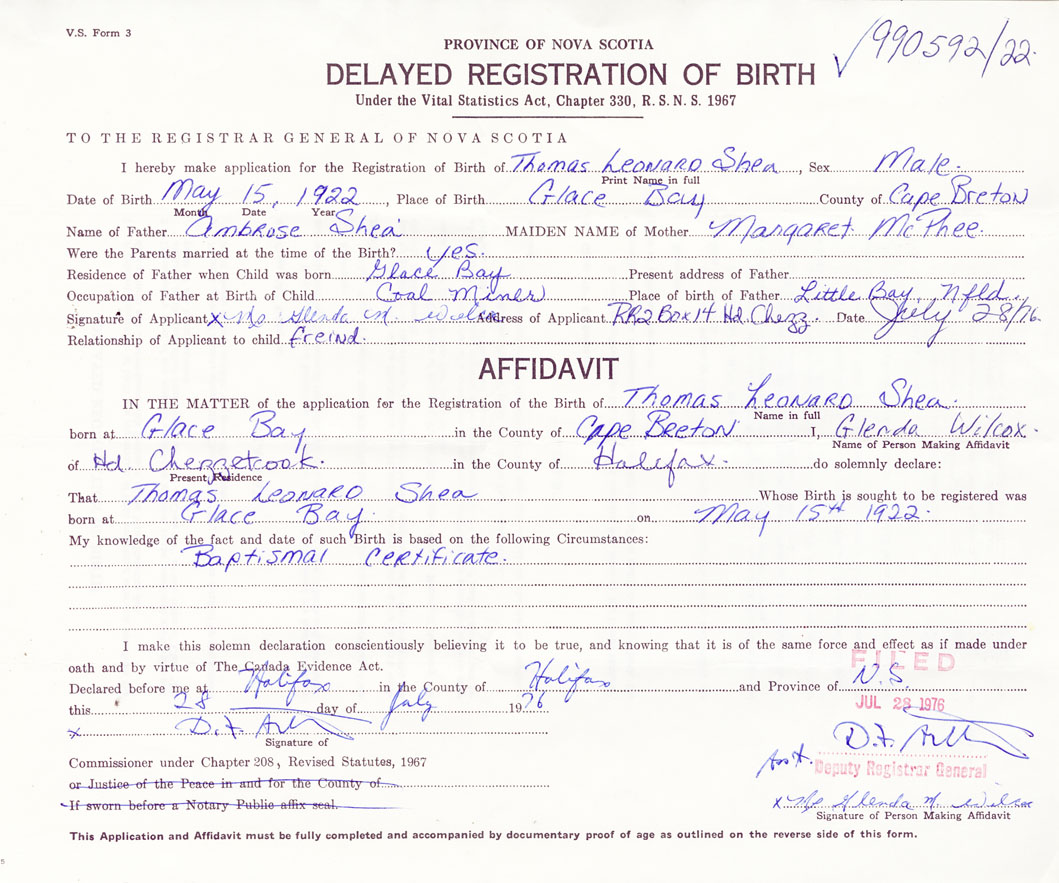 V.S. Form 3
PROVINCE OF NOVA SCOTIA
990592/22
DELAYED REGISTRATION OF BIRTH
Under the Vital Statistics Act, Chapter 330, R.S.N.S. 1967
TO THE REGISTRAR GENERAL OF NOVA SCOTIA
I hereby make application for the Registration of Birth of Thomas Leonard Shea, Sex Male.
Print Name in full
Date of Birth May 15, 1922, Place of Birth Glace Bay County of Cape Breton
Month Date Year
Name of Father Ambrose Shea MAIDEN NAME of Mother Margaret McPhee.
Were the Parents married at the time of the Birth? Yes.
Residence of Father when Child was born Glace Bay Present address of Father
Occupation of Father at Birth of Child Coal Miner Place of birth of Father Little Bay, Nfld.
Signature of Applicant x Ms Glenda M. Wilcox Address of Applicant RR2 Box 14 Hd. Chezz. Date July 28/76.
Relationship of Applicant to child freind.
AFFIDAVIT
IN THE MATTER of the application for the Registration of the Birth of Thomas Leonard Shea.
Name in full
born at Glace Bay in the County of Cape Breton I, Glenda Wilcox.
Name of Person Making Affidavit
of Hd. Chezzetcook. in the County of Halifax. do solemnly declare:
Present Residence
That Thomas Leonard Shea Whose Birth is sought to be registered was
born at Glace Bay. on May 15th 1922.
My knowledge of the fact and date of such Birth is based on the following Circumstances:
Baptismal Certificate.
I make this solemn declaration conscientiously believing it to be true, and knowing that it is of the same force and effect as if made under
oath and by virtue of The Canada Evidence Act.
FILED
Declared before me at Halifax in the County of Halifax and Province of N.S.
this 28 day of July 1976
JUL 28 1976
x D.F.
D.F.
Signature of
Commissioner under Chapter 208, Revised Statutes, 1967
Asst. Deputy Registrar General
or Justice of the Peace in and for the County of
If sworn before a Notary Public affix seal.
x Ms Glenda M. Wilcox
Signature of Person Making Affidavit
This Application and Affidavit must be fully completed and accompanied by documentary proof of age as outlined on the reverse side of this form.
5